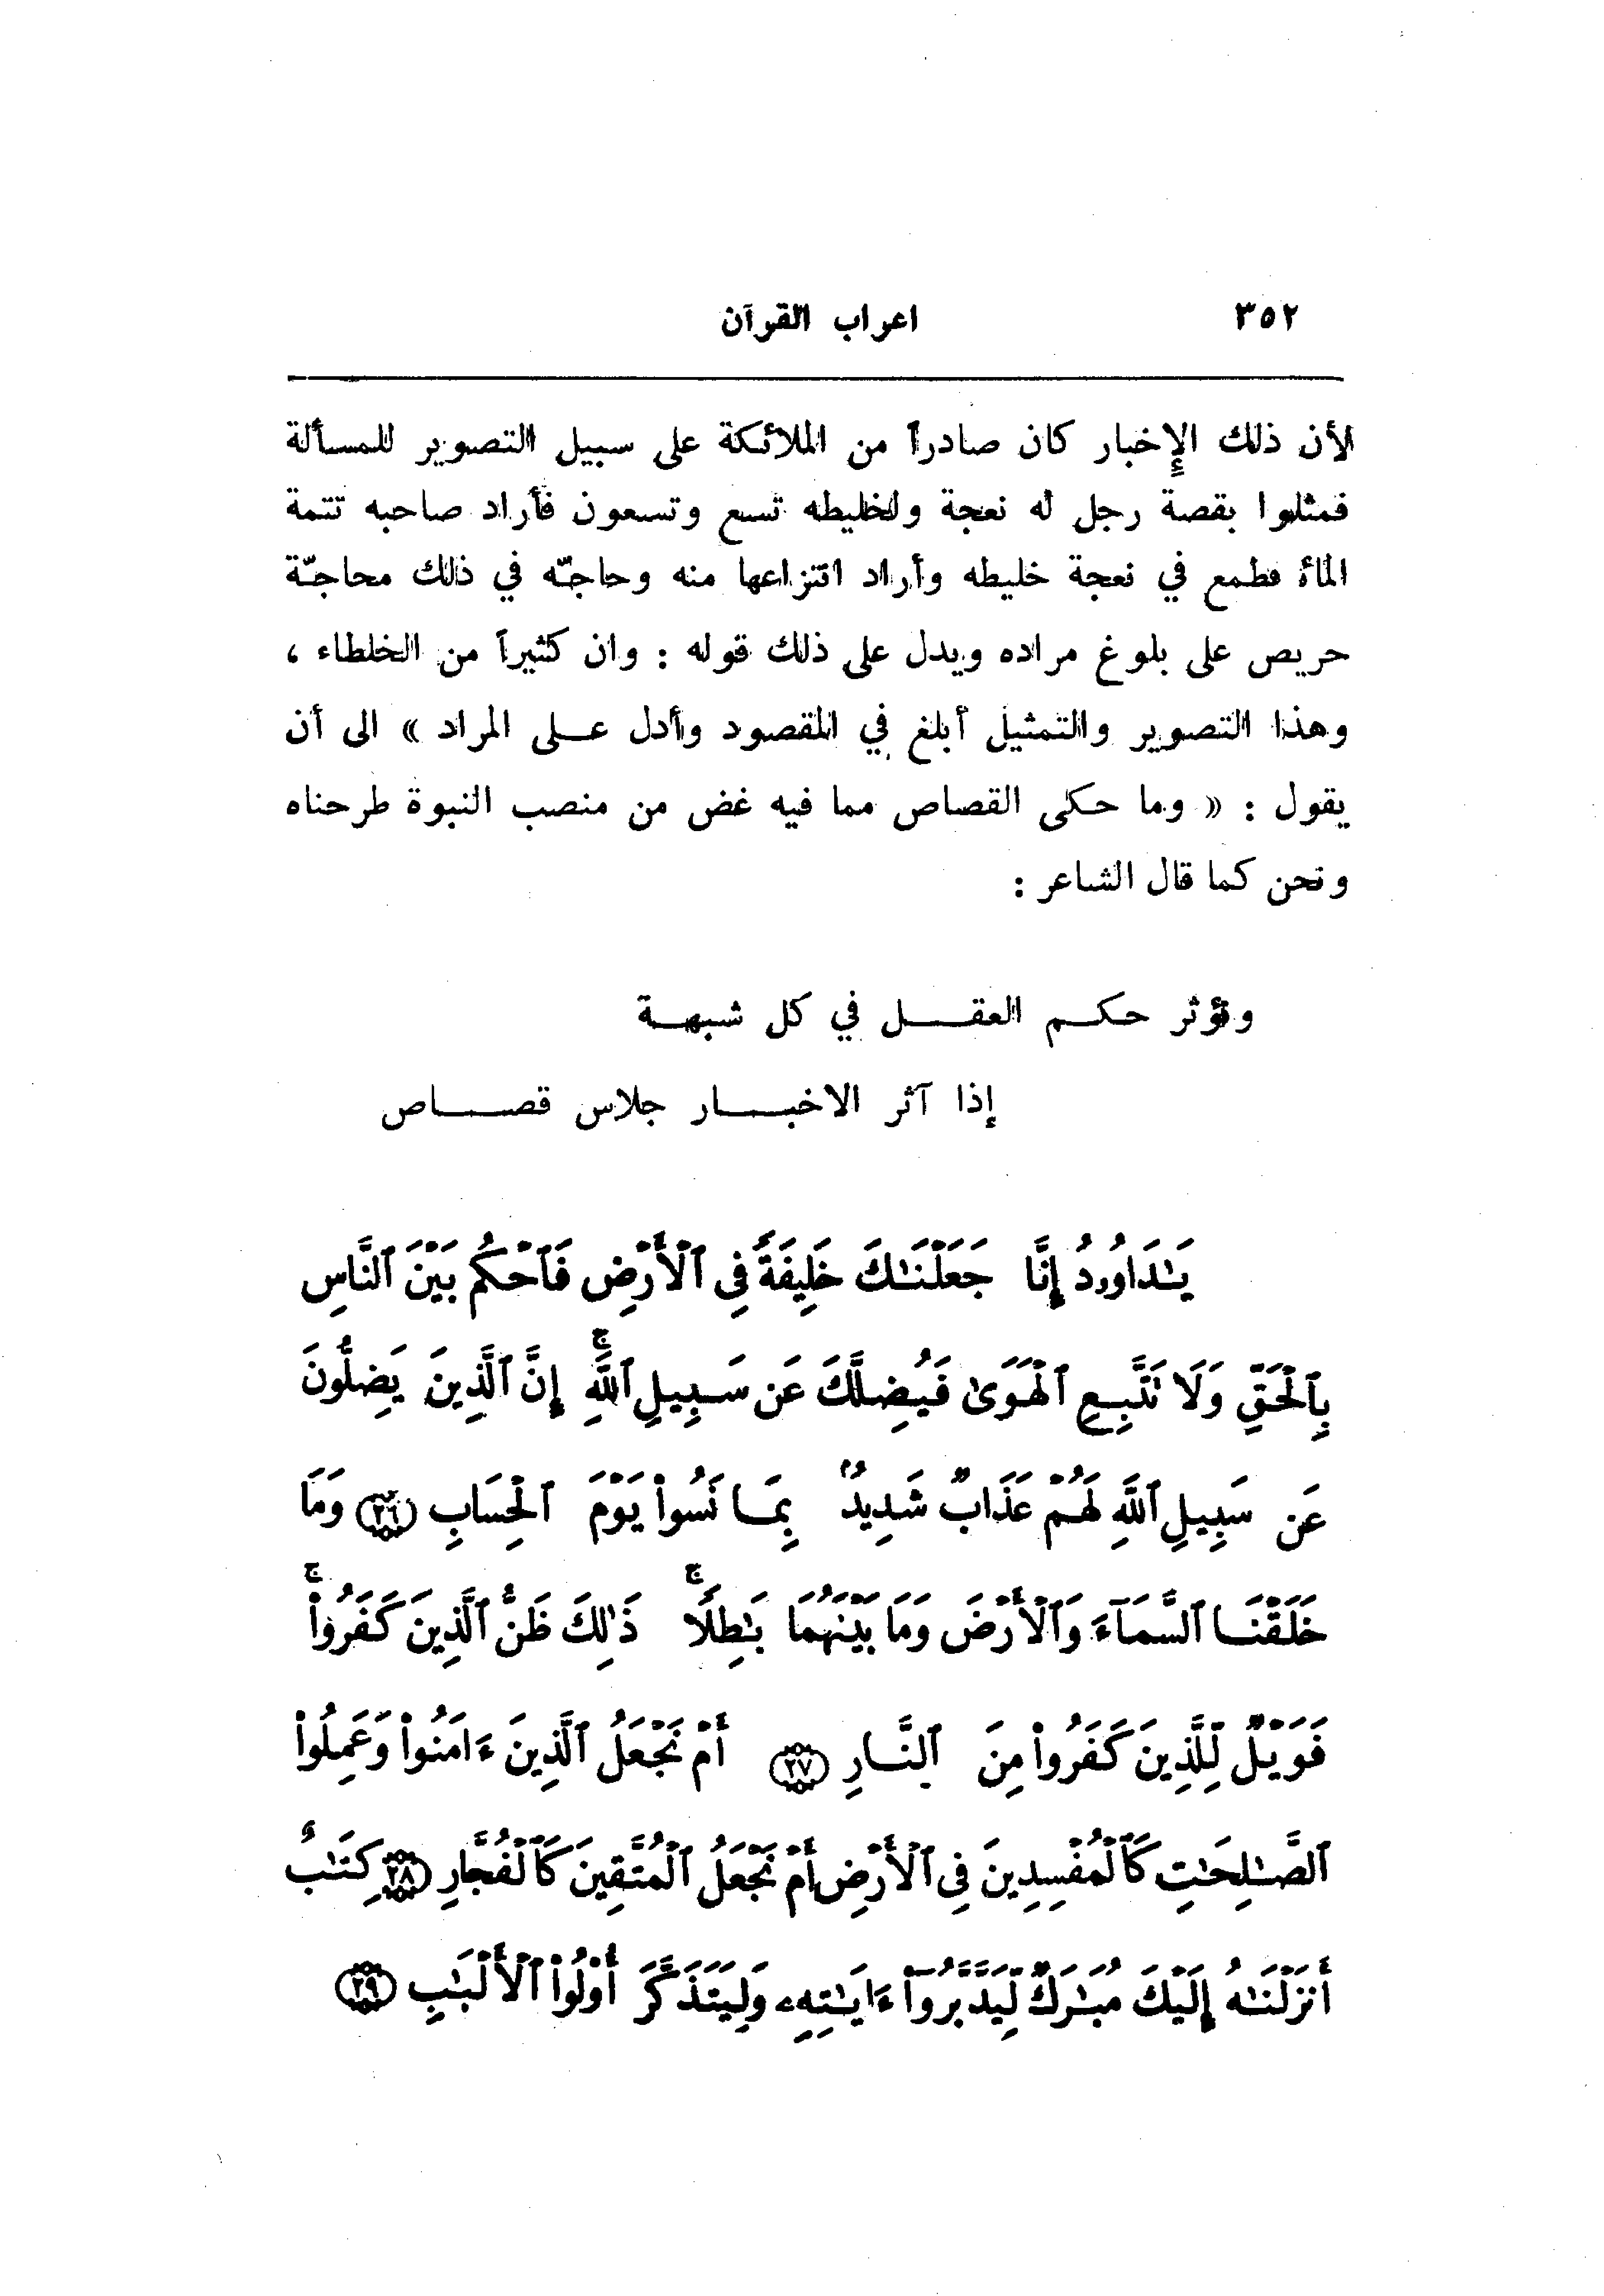 ٣٥٢ اعراب القرآن
لأن ذلك الإِخبار كان صادراً من الملائكة على سبيل التصوير للمسألة
فمثلوا بقصة رجل له نعجة ولخليطه تسع وتسعون فأراد صاحبه تتمة
المائة فطمع في نعجة خليطه وأراد انتزاعها منه وحاجّه في ذلك محاجّة
حريص على بلوغ مراده ويدل على ذلك قوله : وان كثيراً من الخلطاء ،
وهذا التصوير والتمثيل أبلغ في المقصود وأدل على المراد » الى أن
يقول : « وما حكى القصاص مما فيه غض من منصب النبوة طرحناه
ونحن كما قال الشاعر :
ونؤثر حكم العقل في كل شبهة
إذا آثر الاخبار جلاس قصاص
يَـٰدَاوُۥدُ إِنَّا جَعَلْنَـٰكَ خَلِيفَةً فِى ٱلْأَرْضِ فَٱحْكُم بَيْنَ ٱلنَّاسِ
بِٱلْحَقِّ وَلَا تَتَّبِعِ ٱلْهَوَىٰ فَيُضِلَّكَ عَن سَبِيلِ ٱللَّهِ ۚ إِنَّ ٱلَّذِينَ يَضِلُّونَ
عَن سَبِيلِ ٱللَّهِ لَهُمْ عَذَابٌ شَدِيدٌۢ بِمَا نَسُوا۟ يَوْمَ ٱلْحِسَابِ ﴿٢٦﴾ وَمَا
خَلَقْنَا ٱلسَّمَآءَ وَٱلْأَرْضَ وَمَا بَيْنَهُمَا بَـٰطِلًا ۚ ذَٰلِكَ ظَنُّ ٱلَّذِينَ كَفَرُوا۟ ۚ
فَوَيْلٌ لِّلَّذِينَ كَفَرُوا۟ مِنَ ٱلنَّارِ ﴿٢٧﴾ أَمْ نَجْعَلُ ٱلَّذِينَ ءَامَنُوا۟ وَعَمِلُوا۟
ٱلصَّـٰلِحَـٰتِ كَٱلْمُفْسِدِينَ فِى ٱلْأَرْضِ أَمْ نَجْعَلُ ٱلْمُتَّقِينَ كَٱلْفُجَّارِ ﴿٢٨﴾ كِتَـٰبٌ
أَنزَلْنَـٰهُ إِلَيْكَ مُبَـٰرَكٌ لِّيَدَّبَّرُوٓا۟ ءَايَـٰتِهِۦ وَلِيَتَذَكَّرَ أُو۟لُوا۟ ٱلْأَلْبَـٰبِ ﴿٢٩﴾